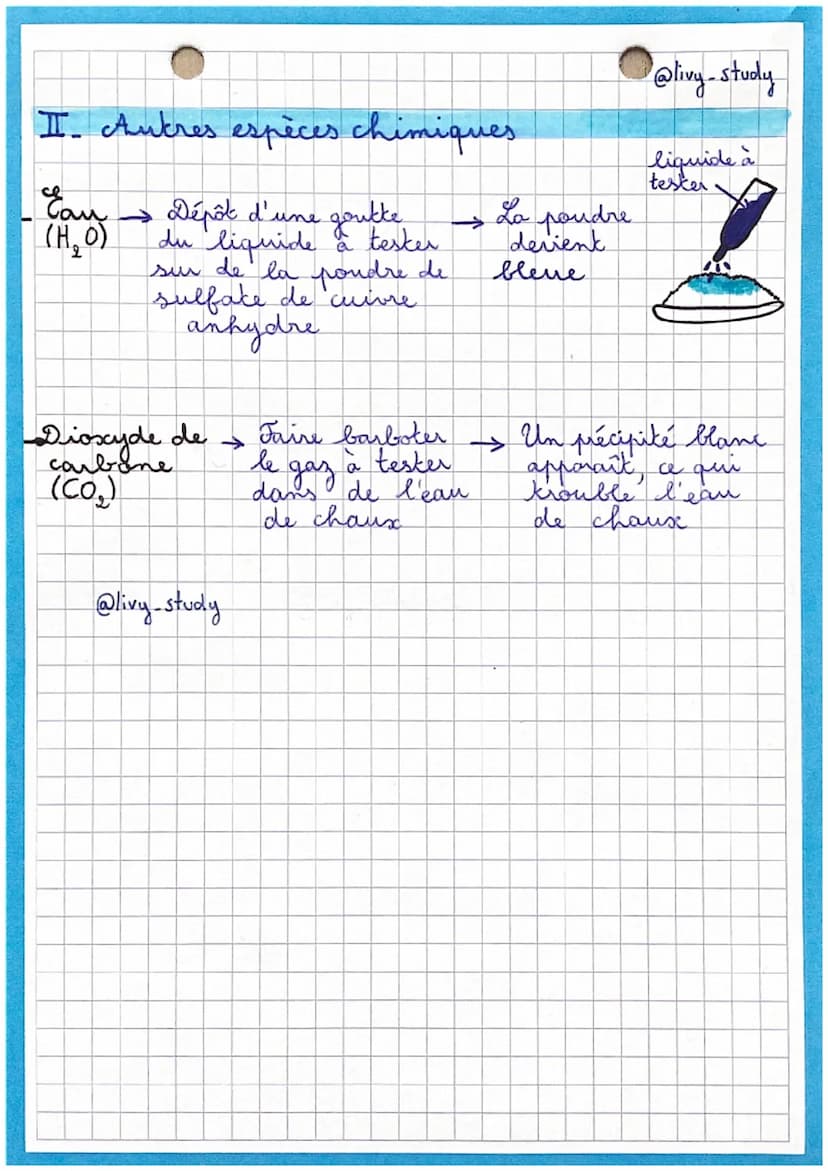 @livy_study
II. Autres espèces chimiques
liquide à
tester
- Eau → Dépôt d'une goutte → La poudre
(H₂O) du liquide à tester devient
sur de la poudre de bleue
sulfate de cuivre
anhydre
- Dioxyde de → Faire barboter → Un précipité blanc
carbone le gaz à tester apparaît, ce qui
(CO₂) dans de l'eau trouble l'eau
de chaux de chaux
@livy_study